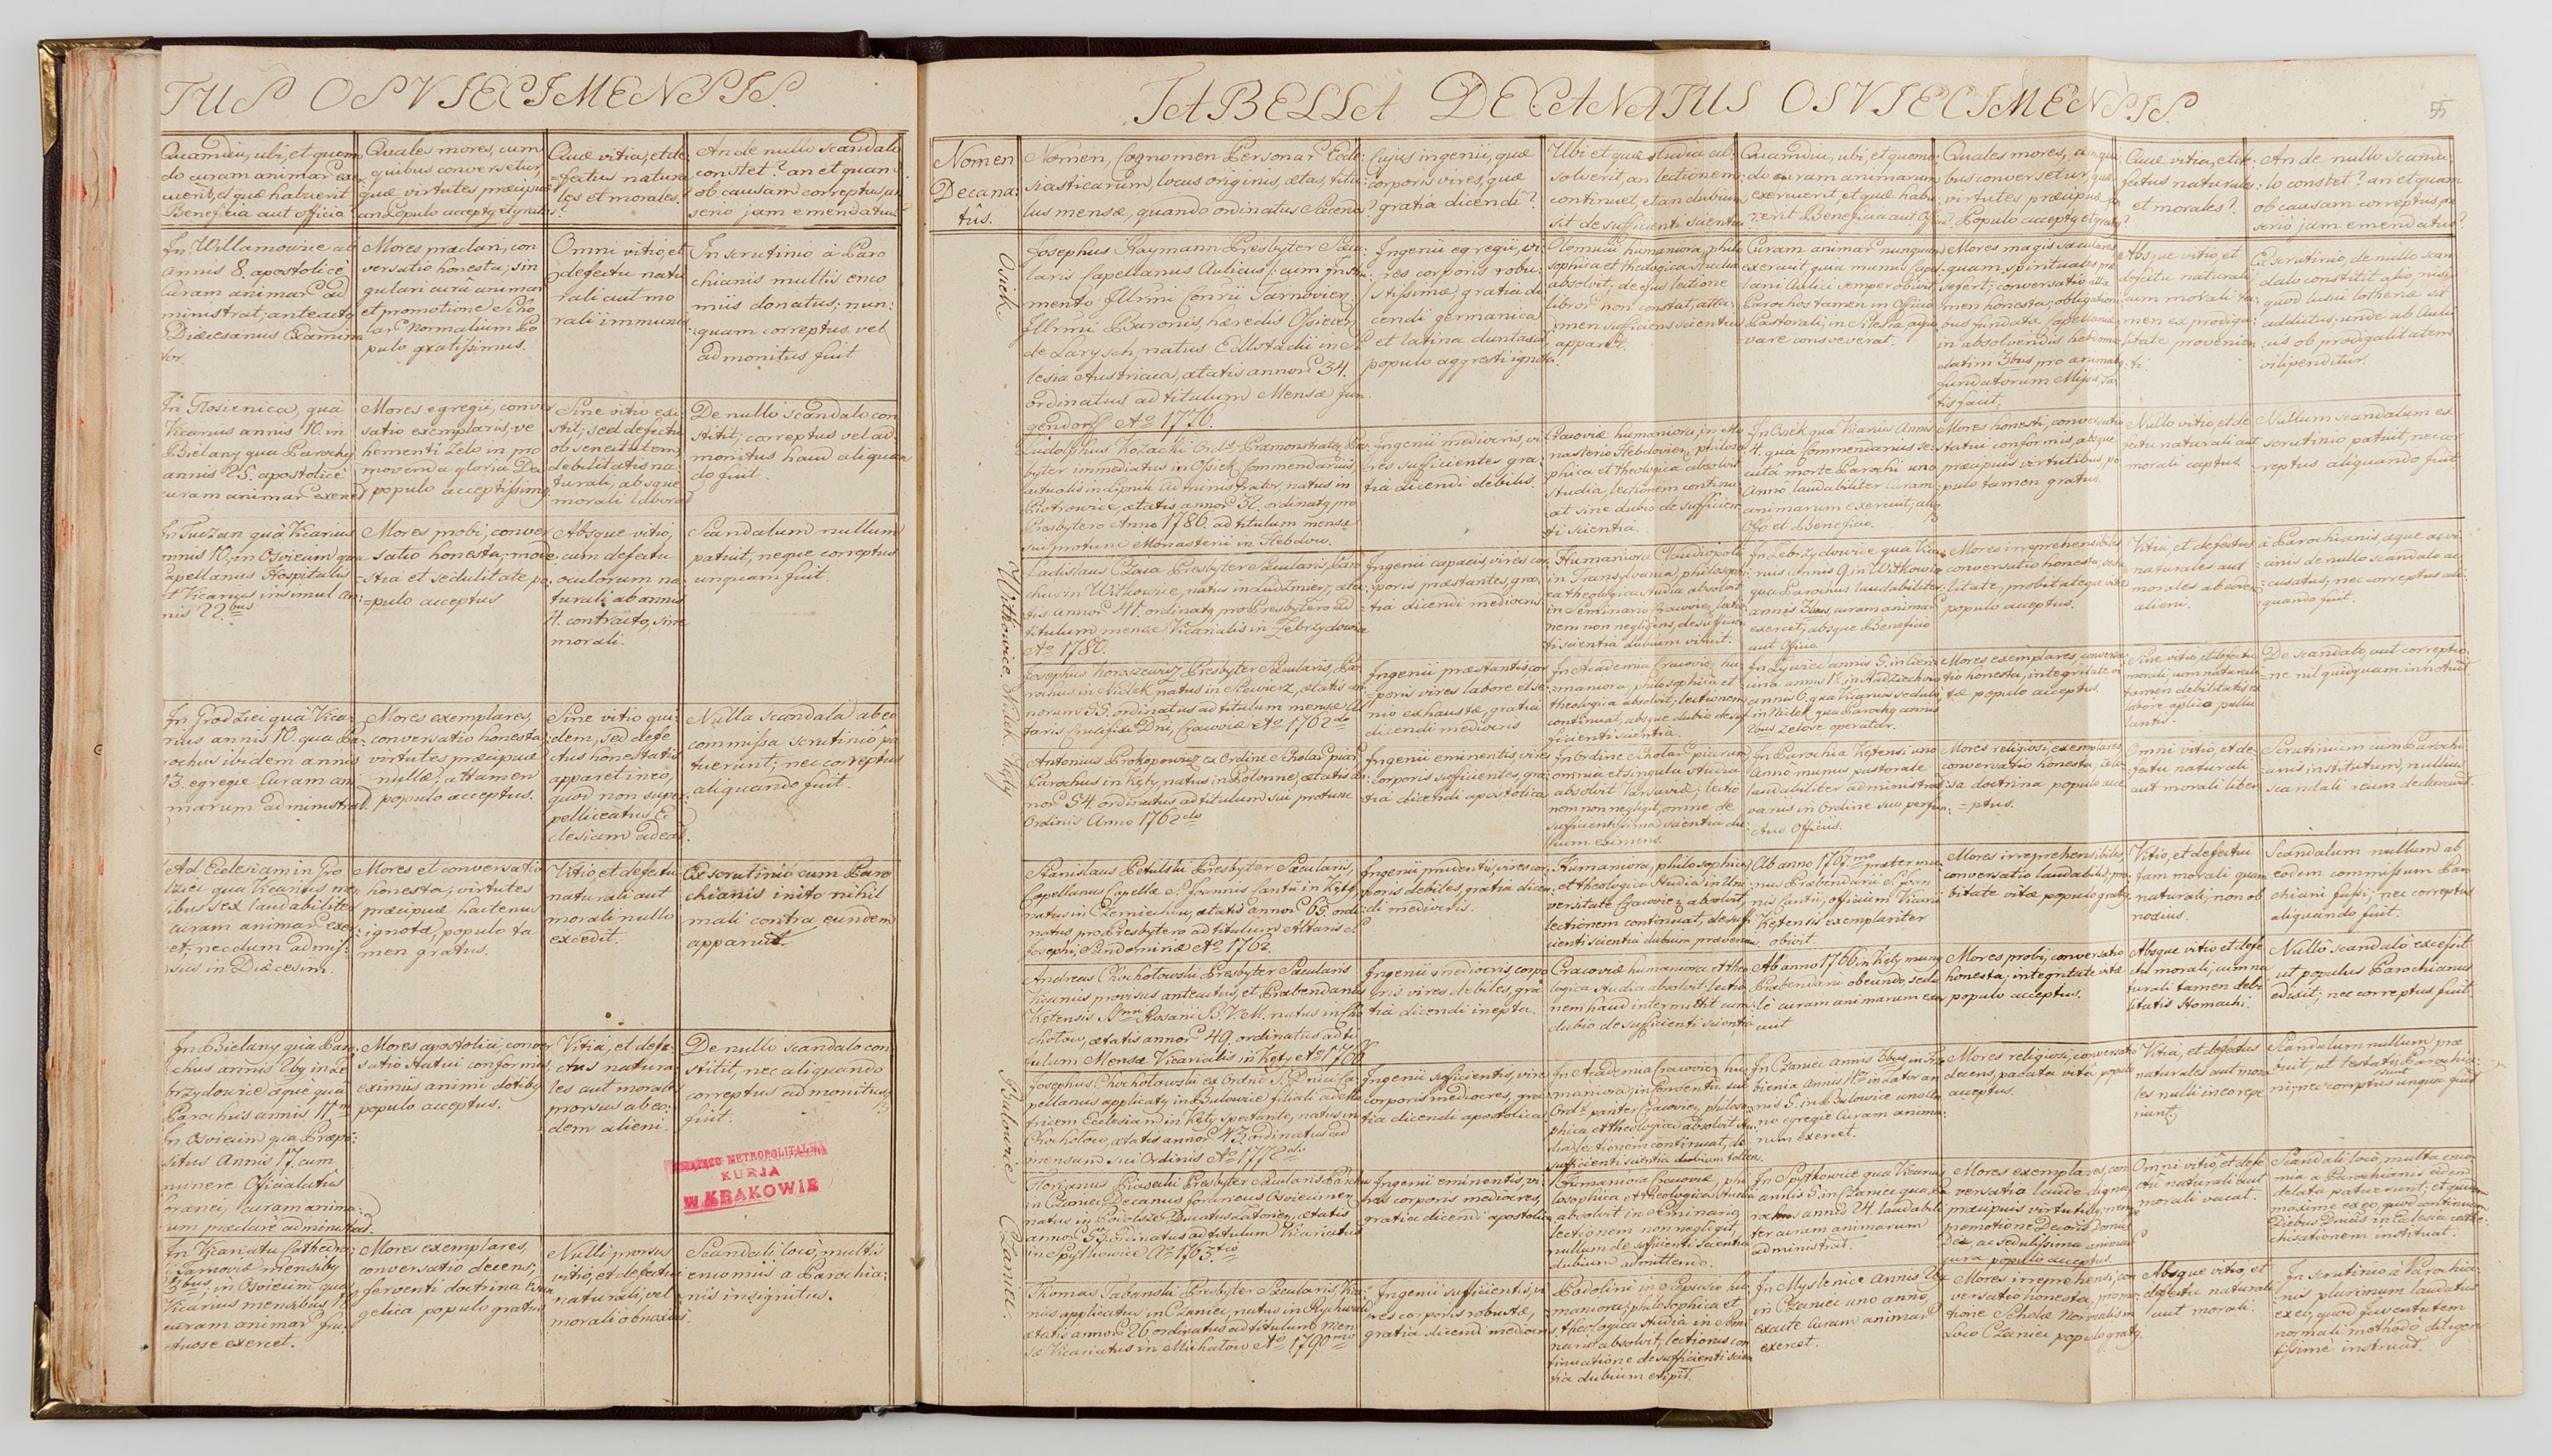 TUS OSVIECIMENSIS.
Quamdiu, ubi, et quomo
do curam animar exer
cuerit, et quæ habuerit
Beneficia aut officia?
Quales mores, cum
quibus conversetur,
quæ virtutes præcipuæ
an Populo acceptus et gratus?
Quæ vitia, et de
fectus natura
les et morales?
An de nullo scandalo
constet? an et quam
ob causam correptus, an
serio jam emendatus
In Willamowice ab
annis 8. apostolicè
Curam animar ad
ministrat; anteacto
Diæcesanus Examina
tor.
Mores præclari, con
versatio honesta; sin
gulari curâ animar
et promotione Scho
lar Normalium Po
pulo gratissimus.
Omni vitio, et
defectu natu
rali aut mo
rali immunis
In scrutinio à Paro
chianis multis enco
miis donatus; nun:
quam correptus vel
admonitus fuit
In Nosienica, quà
Vicarius annis 10. in
Bielany qua Parochus
annis 25. apostolicè
curam animar exercet
Mores egregii, conver
satio exemplaris; ve
hementi Zelo in pro
movenda gloria Dei
populo acceptissimus
Sine vitio exi
stit; sed defectu
ob senectutem
debilitatis na
turali, absque
morali laborat
De nullo scandalo con
stitit; correptus vel ad
monitus haud aliquan
do fuit.
In Tuczan quà Vicarius
annis 10. in Osviecim qua
Capellanus Hospitalis
et Vicarius insimul an
nis 22.bus
Mores probi, conver
satio honesta; mode
stia et sedulitate po
=pulo acceptus
Absque vitio,
cum defectu
oculorum na
turali ab annis
4. contracto, sine
morali.
Scandalum nullum
patuit, neque correptus
unquam fuit.
In Grodziec quà Vica
rius annis 10. qua Pa
rochus ibidem annis
13. egregie Curam ani
marum administrat.
Mores exemplares,
conversatio honesta
virtutes præcipuæ
nullæ; attamen
populo acceptus.
Sine vitio qui
dem, sed defe
ctus honestatis
apparet in eo,
quod non super
pelliceatus Ec
clesiam adeat.
Nulla scandala ab eo
commissa scrutinio pa
tuerunt; nec correptus
aliquando fuit.
Ad Ecclesiam in Gro
dziec qua Vicarius men
sibus sex laudabiliter
curam animar exer
cet, necdum admis
sus in Diæcesim.
Mores et conversatio
honesta; virtutes
præcipuæ hactenus
ignotæ, populo ta
men gratus.
Vitio, et defectu
naturali aut
morali nullo
excedit.
Ex scrutinio cum Paro
chianis inito nihil
mali contra eundem
apparuit.
In Bielany quà Paro
chus annis 2bus in Ze
brzydowice æque quà
Parochus annis 17m
In Osviecim qua Præpo:
situs Annis 17. cum
munere Officialatûs
foranei, Curam anima:
rum præclarè administrat.
Mores apostolici, conver
satio statui conformis
eximiis animi dotibus
populo acceptus.
Vitia, et defe:
ctus natura
les aut morales
prorsus ab eo:
dem alieni.
De nullo scandalo con
stitit, nec aliquando
correptus admonitus
fuit.
KSIĄŻĘCO METROPOLITALNA
KURJA
W KRAKOWIE
In Vicariatu Cathedra:
Tarnoviæ mensibus
3bus, in Osviecim qua
Vicarius mensibus 18
curam animar fru
ctuose exercet.
Mores exemplares,
conversatio decens;
ferventi doctrina Evan
gelica populo gratus
Nulli prorsus
vitio, et defectui
naturali, vel
morali obnoxius.
Scandali locô, multis
encomiis a Parochia:
nis insignitus.
TABELLA DECANATUS OSVIECIMENSIS.
55
Nomen
Decana:
tûs.
Nomen, Cognomen Personar Eccle
siasticarum, locus originis, ætas, titu
lus mensæ, quando ordinatus Sacerdos?
Cujus ingenii, quæ
corporis vires, quæ
gratia dicendi?
Ubi et quæ studia ab
solverit, an lectionem
continuet, et an dubium
sit de sufficienti scientia
Quamdiu, ubi, et quomo
do curam animarum
exercuerit, et quæ habu
erit Beneficia aut Officia?
Quales mores, cum qui
bus conversetur, quæ
virtutes præcipuæ, an
Populo acceptus et gratus?
Quæ vitia, et de
fectus naturales
et morales?
An de nullo scanda:
lo constet? an et quam
ob causam correptus, an
serio jam emendatus?
Osiek
Josephus Raymann Presbyter Sæcu
laris Capellanus Aulicus; cum Instru
mento Illrmi Conrii Tarnovien.
Illrmi Baronis, hæredis Ossiecen
de Larysch, natus Edlstadii in Si
lesia Austriaca, ætatis annor 34.
ordinatus ad titulum Mensæ Jun
gendorff Ao 1776.
Ingenii egregii, vi
res corporis robu
stissimæ, gratia di
cendi germanica
et latina duntaxat
populo aggresti ignota.
Olomucii humaniora, philo
sophica et theologica studia
absolvit; de ejus lectione
libror non constat, atta
men sufficiens scientia
apparet.
Curam animar nunquam
exercuit, quia munus Capel
lani Aulici semper obivit
Parochos tamen in Officio
Pastorali, in Silesia, adju
vare consveverat.
Mores magis sæculares
quam spirituales præ
sefert; conversatio atta
men honesta; obligationi
bus fundatæ Capellaniæ
in absolvendis hebdoma
datim 3bus pro animabus
fundatorum Missis, sa
tisfacit.
Absque vitio et
defectu naturali
cum morali ta
men ex prodiga
litate provenien
ti.
E scrutinio, de nullo scan
dalo constitit alio, nisi
quod lusui lotheriæ sit
addictus; unde ab Auli
cis ob prodigalitatem
vilipenditur.
Ludolphus Kozacki Ordis Præmonstratens Pres
byter immediatus in Ossiek Commendarius
actualis in Lipnik Administrator, natus in
Piotrowice, ætatis annor 32. ordinatus pro
Presbytero Anno 1786. ad titulum mensæ
sui protunc Monasterii in Hebdow.
Ingenii mediocris, vi
res sufficientes gra
tia dicendi debilis.
Cracoviæ humaniora, in Mo
nasterio Hebdovien, philoso
phica et theologica absolvit
studia, lectionem continu
at sine dubio de sufficien
ti scientia.
In Ossiek quà Vicarius Annis
4. qua Commendarius se
cutâ morte Parochi uno
Annô laudabiliter Curam
animarum exercuit; absq
Offo et Beneficio.
Mores honesti, conversatio
statui conformis, absque
præcipuis virtutibus, po
pulo tamen gratus.
Nullo vitio, et de
fectu naturali aut
morali captus
Nullum scandalum ex
scrutinio patuit, nec cor
reptus aliquando fuit
Witkowice
Ladislaus Czaia Presbyter Sæcularis, Paro
chus in Witkowice, natus in Ludzmierz, æta
tis annor 41. ordinatus pro Presbytero ad
titulum mensæ Vicarialis in Zebrzydowice
Ao 1780.
Ingenii capacis, vires cor
poris præstantes, gra
tia dicendi mediocris
Humaniora Claudiopoli
in Transylvania, philosophi
ca theologica studia absolvit
in Seminario Cracovien, lectio
nem non negligens, de sufficien
ti scientia dubium vitavit.
In Zebrzydowice qua Vica
rius Annis 9. in Witkowice
qua Parochus laudabiliter
annis 3bus, curam animar
exercet; absque Beneficio
aut Officio.
Mores irreprehensibiles
conversatio honesta, seda
litate, probitateque vitæ
populo acceptus.
Vitia, et defectus
naturales aut
morales ab eodem
alieni.
à Parochianis, æque ac vi
canis de nullo scandalo ac
cusatus; nec correptus ali
quando fuit.
Nidek
Josephus Choraczewicz Presbyter Sæcularis, Pa
rochus in Nidek, natus in Slewierz, ætatis an
norum 55. ordinatus ad titulum mensæ Al
taris Crucifixi Dni, Cracoviæ Ao 1762do
Ingenii præstantis, cor
poris vires labore et se
nio exhaustæ, gratia
dicendi mediocris
In Academia Cracovien, hu
maniora, philosophica et
theologica absolvit; lectionem
continuat, absque dubio de suf
ficienti scientia.
In Zywiec annis 5. in Cien
cina annis 12. in Rudziechowic
annis 6. qua Vicarius sedulo
in Nidek qua Parochus annis
2bus zelose operatur.
Mores exemplares, conversa
tio honesta, integritate vi
tæ populo acceptus.
Sine vitio, et defectu
morali, cum naturali
tamen debilitatis ex
labore aplico pullu
lantis.
De scandalo, aut correptio
ne nil quidquam innotuit
Kęty
Antonius Prokopowicz ex Ordine Scholar Piar
Parochus in Kęty, natus in Polonne, ætatis an
nor 54. ordinatus ad titulum sui protunc
Ordinis Anno 1762do
Ingenii eminentis, vires
corporis sufficientes, gra
tia dicendi apostolica
In Ordine Scholar piarum
omnia et singula studia
absolvit Varsaviæ; lectio
nem non negligit, omne de
sufficientissima scientia du
bium eximens.
In Parochia Kętensi uno
Annô munus pastorale
laudabiliter administrat
varius in Ordine suo perfun
ctus Officiis.
Mores religiosi, exemplares,
conversatio honesta, Zelo
sa doctrina populo acce
=ptus.
Omni vitio, et de
fectu naturali
aut morali liber
Scrutinium cum Parochi
anis institutum, nullius
scandali reum declaravit.
Stanislaus Petulski Presbyter Sæcularis,
Capellanus Capellæ S. Joannis Cantii in Kęty
natus in Czerniechow, ætatis annor 65. ordi
natus pro Presbytero ad titulum Altaris S.
Josephi, Sandomiriæ Ao 1762
Ingenii prudentis, vires cor
poris debiles, gratia dicen
di mediocris.
Humaniora, philosophica
et theologica Studia in Uni
versitate Cracovien absolvit,
lectionem continuat, de suffi
cienti scientia dubium præveniens
Ab anno 1767mo præter mu
nus Præbendarii S. Joan
nis Cantii, officium Vicarii
Kętensis exemplariter
obivit.
Mores irreprehensibiles,
conversatio laudabilis, pro
bitate vitæ populo gratus
Vitio, et defectui
tam morali quam
naturali, non ob
noxius.
Scandalum nullum ab
eodem commissum Paro
chiani fassi; nec correptus
aliquando fuit.
Andreas Chochołowski Presbyter Sæcularis
Vicarius provisus anteactus, et Præbendarius
Kętensis Ssmi Rosarii B.V.M. natus in Cho
chołow, ætatis annor 49. ordinatus ad ti
tulum Mensæ Vicarialis in Kęty, Ao 1766
Ingenii mediocris, corpo
ris vires debiles, gra
tia dicendi inepta.
Cracoviæ humaniora et theo
logica studia absolvit, lectio
nem haud intermittit cum
dubio de sufficienti scientia
Ab anno 1766 in Kęty munus
Præbendarii obeundo, sedu
lè curam animarum exer
cuit
Mores probi, conversatio
honesta; integritate vitæ
populo acceptus.
Absque vitio et defe
ctu morali, cum na
turali tamen debi
litatis stomachi.
Nullô scandalô excessit
ut populus Parochianus
edixit; nec correptus fuit
Bulowice
Josephus Chochołowski ex Ordine S. Dnici Ca
pellanus applicatus in Bulowice filiali ad Ma
tricem Ecclesiam in Kęty spectante, natus in
Chochołow, ætatis annor 43. ordinatus ad
mensam sui Ordinis Ao 1772do
Ingenii sufficientis, vires
corporis mediocres, gra
tia dicendi apostolica
In Academia Cracovien hu
maniora, in Conventu sui
Ordis pariter Cracovien, philoso
phica et theologica absolvit stu
dia, lectionem continuat, de
sufficienti scientia dubium tollens.
In Czaniec annis 3bus in Trze
bienia annis 11. in Zator an
nis 5. in Bulowice uno An
no egregie Curam anima:
rum exercet.
Mores religiosi, conversatio
decens, pacata vitâ, populo
acceptus.
Vitia, et defectus
naturales aut mora
les nulli in eo repe
riunt.
Scandalum nullum præ
buit, ut testatus Parochia
ni; nec corrptus unqua fuit
Czaniec.
Florianus Piasecki Presbyter Sæcularis Parochus
in Czaniec, Decanus foraneus Osviecimen
natus in Podolsze Ducatus Zatorien, ætatis
annor 53. ordinatus ad titulum Vicariatus
in Spytkowice Ao 1763tio
Ingenii eminentis, vi
res corporis mediocres,
gratia dicendi apostolica
Humaniora Cracoviæ, phi
losophica et theologica studia
absolvit in Seminario,
lectionem non negligit,
nullum de sufficienti scientia
dubium admittendo.
In Spytkowice qua Vicarius
annis 5. in Czaniec qua Pa
rochus annis 24. laudabili
ter curam animarum
administrat.
Mores exemplares, con
versatio laude digna,
præcipuis virtutibus, nempe
promotione Decoris Domus
Dei ac sedulissima animar
cura populo acceptus.
Omni vitiô, et defe
ctu naturali aut
morali vacat.
Scandali locô, multa enco
mia a Parochianis eidem
delata patuerunt; et quam
maxime ex eo, quod continuam
Diebus Dnicis in Ecclesia cate
chisationem instituat.
Thomas Tabanski Presbyter Sæcularis, Vica
rius applicatus in Czaniec, natus in Rychwald
ætatis annor 26. ordinatus ad titulum Men
sæ Vicariatus in Michałow Ao 1790mo
Ingenii sufficientis, vi
res corporis robustæ,
gratia dicendi mediocris
Podolini in Scepusio hu
maniora; philosophica et
theologica studia in Semi
nario absolvit, lectionis con
tinuatione de sufficienti scien
tia dubium eripit.
In Myslenice annis 2bus
in Czaniec uno anno,
exacte Curam animar
exercet.
Mores irreprehensi, con
versatio honesta, promo
tione Scholæ Normalis in
Loco Czaniec populo gratus.
Absque vitio, et
defectu naturali
aut morali.
In scrutinio à Parochia
nis plurimum laudatus
ex eo, quod Juventutem
normali methodo diligen
tissimè instruat.